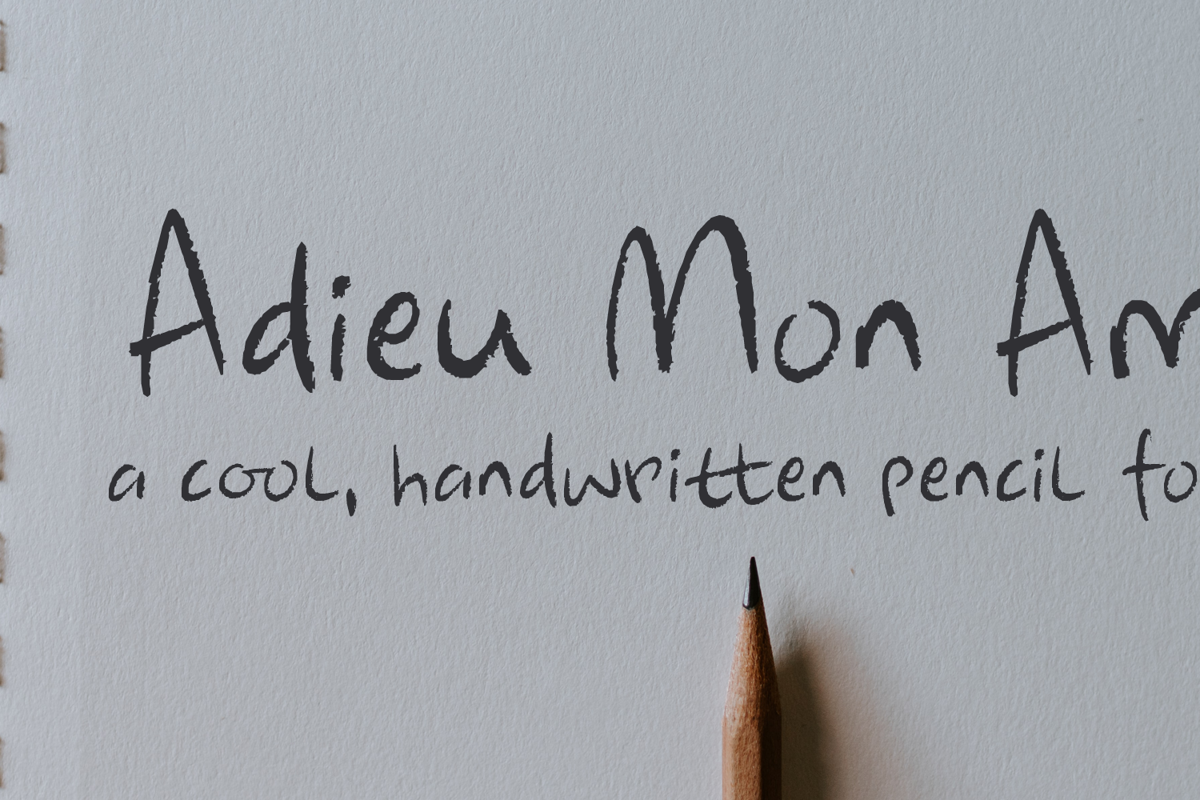 Adieu Mon Am
a cool, handwritten pencil fo